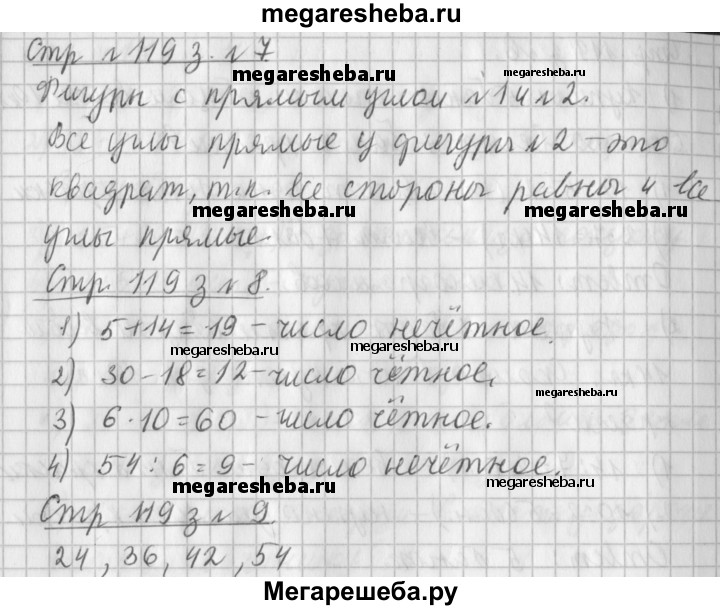 megaresheba.ru
Стр №119 з. №7
megaresheba.ru
megaresheba.ru
Фигуры с прямым углом №1 и №2.
Все углы прямые у фигуры №2 – это
квадрат, т.к. все стороны равны и все
megaresheba.ru
megaresheba.ru
углы прямые.
Стр. 119 з №8.
1) 5+14=19 – число нечётное.
megaresheba.ru
megaresheba.ru
2) 30-18=12 – число чётное.
megaresheba.ru
3) 6·10=60 – число чётное.
4) 54:6=9 – число нечётное.
megaresheba.ru
megaresheba.ru
Стр 119 з №9
24, 36, 42, 54
Мегарешеба.ру